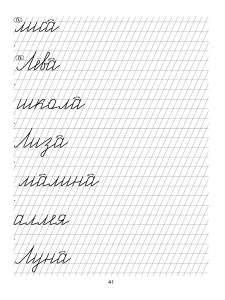 лиса
Лева
школа
Лиза
малина
аллея
Луна
41